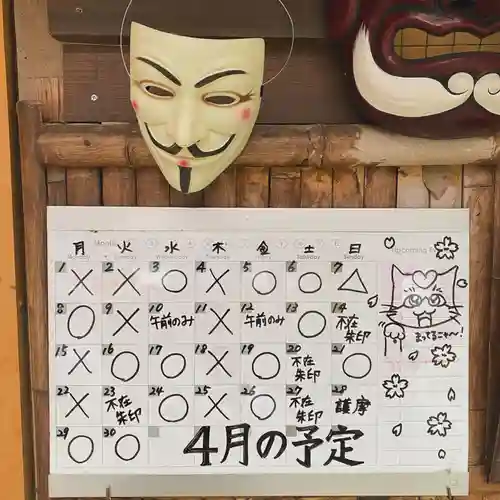 月 火 水 木 金 土 日
1 × 2 × 3 ○ 4 × 5 ○ 6 ○ 7 △
8 ○ 9 × 10 午前のみ 11 × 12 午前のみ 13 ○ 14 不在 朱印
15 × 16 ○ 17 ○ 18 × 19 ○ 20 不在 朱印 21 ○
22 × 23 不在 朱印 24 ○ 25 × 26 ○ 27 不在 朱印 28 護摩
29 ○ 30 ○
4月の予定
まってるニャ〜!